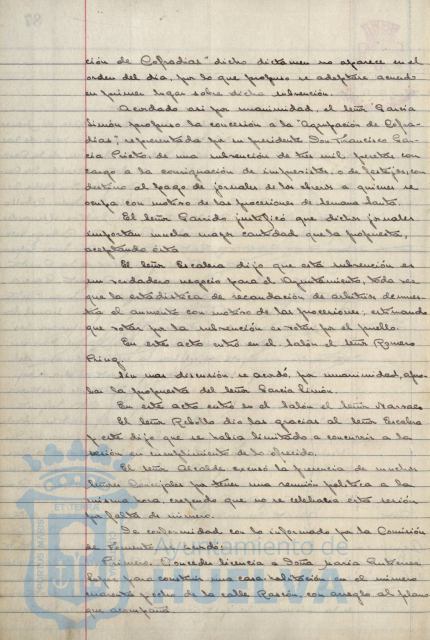 ción de Cofradias" dicho dictamen no aparece en el
orden del dia, por lo que propuso se adoptase acuerdo
en primer lugar sobre dicha subvención.
Acordado asi por unanimidad, el señor García
Simón propuso la concesión a la "Agrupación de Cofra-
dias", representada por su presidente Don Francisco Gar-
cía Prieto, de una subvención de tres mil pesetas con
cargo a la consignación de imprevistos, o de festejos, con
destino al pago de jornales de los obreros a quienes se
ocupa con motivo de las procesiones de Semana Santa.
El señor Garrido justificó que dichos jornales
importan mucha mayor cantidad que la propuesta,
aceptando ésta
El señor Escalera dijo que esta subvención es
un verdadero negocio para el Ayuntamiento, toda vez
que la estadística de recaudación de arbitrios demues-
tra el aumento con motivo de las procesiones, estimando
que votar por la subvención es votar por el pueblo.
En este acto entró en el salón el señor Romero
Pring.
Sin mas discusión, se acordó, por unanimidad, apro-
bar la propuesta del señor García Simón.
En este acto entró en el salón el señor Narvaez
El señor Rebollo dió las gracias al señor Escalera
y este dijo que se habia limitado a concurrir a la
sesión en cumplimiento de lo ofrecido.
El señor Alcalde excusó la presencia de muchos
señores Concejales por tener una reunión política a la
misma hora, creyendo que no se celebraria esta sesión
por falta de número.
De conformidad con lo informado por la Comisión
de Fomento acordó:
Primero. Conceder licencia a Doña Maria Gutierrez
Lopez para construir una casa habitación en el número
cuarenta y ocho de la calle Rascón, con arreglo al plano
que acompaña.
Ayuntamiento de
HUELVA